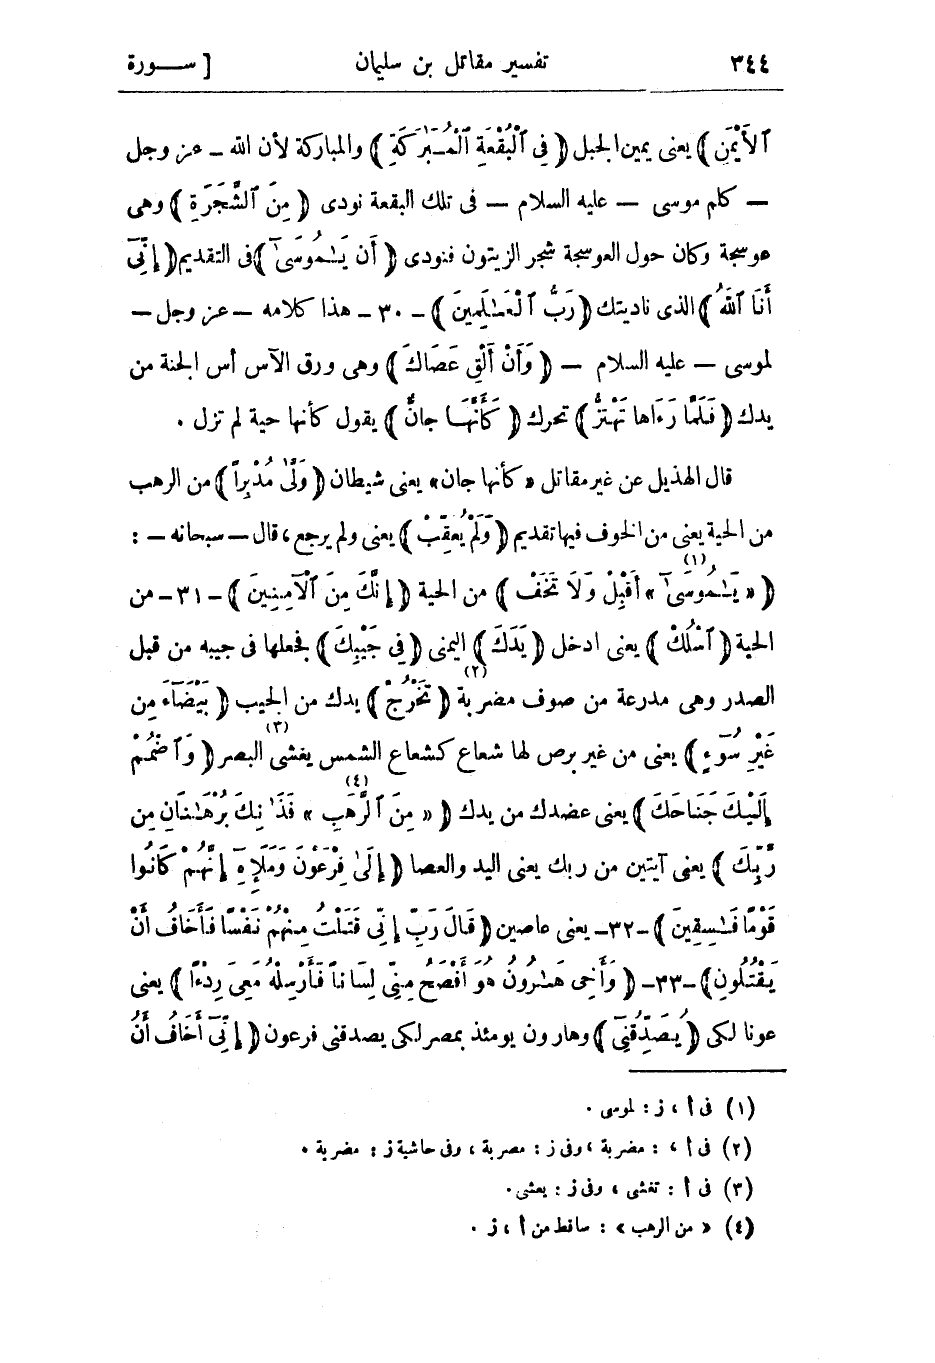 ٣٤٤ تفسير مقاتل بن سليمان [ ســـورة
ٱلْأَيْمَنِ ﴾ يعنى يمين الجبل ﴿ فِى ٱلْبُقْعَةِ ٱلْمُبَـٰرَكَةِ ﴾ والمباركة لأن الله ــ عز وجل
ــ كلم موسى ــ عليه السلام ــ فى تلك البقعة نودى ﴿ مِنَ ٱلشَّجَرَةِ ﴾ وهى
عوسجة وكان حول العوسجة شجر الزيتون فنودى ﴿ أَن يَـٰمُوسَىٰٓ ﴾ فى التقديم ﴿ إِنِّىٓ
أَنَا ٱللَّهُ ﴾ الذى ناديتك ﴿ رَبُّ ٱلْعَـٰلَمِينَ ﴾ ــ ٣٠ ــ هذا كلامه ــ عز وجل ــ
لموسى ــ عليه السلام ــ ﴿ وَأَنْ أَلْقِ عَصَاكَ ﴾ وهى ورق الآس أس الجنة من
يدك ﴿ فَلَمَّا رَءَاها تَهْتَزُّ ﴾ تحرك ﴿ كَأَنَّهَـا جانٌّ ﴾ يقول كأنها حية لم تزل .
قال الهذيل عن غير مقاتل « كأنها جان » يعنى شيطان ﴿ وَلَّىٰ مُدْبِراً ﴾ من الرهب
من الحية يعنى من الخوف فيها تقديم ﴿ وَلَمْ يُعَقِّبْ ﴾ يعنى ولم يرجع ، قال ــ سبحانه ــ :
﴿ « يَـٰمُوسَىٰٓ » (١) أَقْبِلْ وَلَا تَخَفْ ﴾ من الحية ﴿ إِنَّكَ مِنَ ٱلْآمِنِينَ ﴾ ــ ٣١ ــ من
الحية ﴿ ٱسْلُكْ ﴾ يعنى ادخل ﴿ يَدَكَ ﴾ اليمنى ﴿ فِى جَيْبِكَ ﴾ فجعلها فى جيبه من قبل
الصدر وهى مدرعة من صوف مضربة (٢) ﴿ تَخْرُجْ ﴾ يدك من الجيب ﴿ بَيْضَآءَ مِن
غَيْرِ سُوٓءٍ ﴾ يعنى من غير برص لها شعاع كشعاع الشمس يغشى (٣) البصر ﴿ وَٱضْمُمْ
إِلَيْكَ جَنَاحَكَ ﴾ يعنى عضدك من يدك ﴿ « مِنَ ٱلرَّهَبِ » (٤) فَذَٰنِكَ بُرْهَـٰنَانِ مِن
رَّبِّكَ ﴾ يعنى آيتين من ربك يعنى اليد والعصا ﴿ إِلَىٰ فِرْعَوْنَ وَمَلَإِهِ إِنَّهُمْ كَانُوا
قَوْمًا فَـٰسِقِينَ ﴾ ــ ٣٢ ــ يعنى عاصين ﴿ قَالَ رَبِّ إِنِّى قَتَلْتُ مِنْهُمْ نَفْسًا فَأَخَافُ أَنْ
يَقْتُلُونِ ﴾ ــ ٣٣ ــ ﴿ وَأَخِى هَـٰرُونُ هُوَ أَفْصَحُ مِنِّى لِسَاناً فَأَرْسِلْهُ مَعِىَ رِدْءًا ﴾ يعنى
عونا لكى ﴿ يُصَدِّقُنِىٓ ﴾ وهارون يومئذ بمصر لكى يصدقنى فرعون ﴿ إِنِّىٓ أَخَافُ أَنْ
(١) فى أ ، ز : لموسى .
(٢) فى أ ، : مضربة ، وفى ز : مصربة ، وفى حاشية ز : مضربة .
(٣) فى أ : تغشى ، وفى ز : يعشى .
(٤) « من الرهب » : ساقط من أ ، ز .